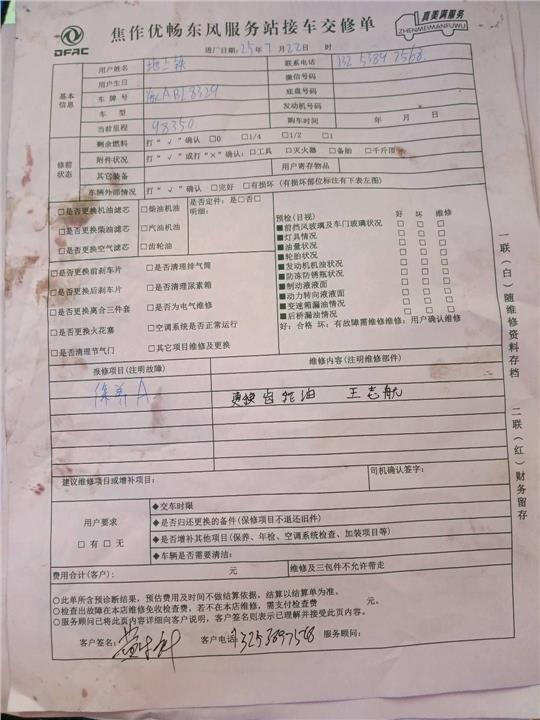 DFAC
焦作优畅东风服务站接车交修单
真美满服务
ZHENMEIMANFUWU
进厂日期：25年7月22日 时
基本信息
用户姓名 地上铁 联系电话 132 5389 7568
用户生日 微信号码
车牌号 ABL8329 底盘号码
车型 发动机号码
当前里程 98350 购车时间 年 月 日
修前状态
剩余燃料 打“√”确认 □0 □1/4 □1/2 □1
附件状况 打“√”或打“×”确认：□工具 □灭火器 □备胎 □千斤顶
其它装备 用户寄存物品
车辆外部情况 打“√”确认 □完好 □有损坏（有损部位标注有下表左图）
□是否更换机油滤芯 □柴油机油 是否定件：是□否□
明细：
□是否更换柴油滤芯 □汽油机油
□是否更换空气滤芯 □齿轮油
□是否更换前刹车片 □是否清理排气筒
□是否更换后刹车片 □是否清理尿素箱
□是否更换离合三件套 □是否为电气维修
□是否更换火花塞 □空调系统是否正常运行
□是否清理节气门 □其它项目维修及更换
预检(目视) 好 坏 维修
■前挡风玻璃及车门玻璃状况 □ □ □
■灯具情况 □ □ □
■油量状况 □ □ □
■轮胎状况 □ □ □
■发动机机油状况 □ □ □
■防冻防锈瓶状况 □ □ □
■制动液液面 □ □ □
■动力转向液液面 □ □ □
■变速箱漏油情况 □ □ □
■后桥漏油情况 □ □ □
好：合格 坏：有故障需维修维修：用户确认维修
报修项目(注明故障) 维修内容(注明维修部件)
保养A 更换齿轮油 王志航
建议维修项目或增补项目： 司机确认签字：
用户要求
□有 □无
◆交车时限
◆是否归还更换的备件(保修项目不退还旧件)
◆是否增补其他项目(保养、年检、空调系统检查、加装项目等)
◆车辆是否需要清洁：
费用合计(客户)： 元 维修及三包件不允许带走
○此单所含预诊断结果，预估费用及时间不做结算依据，结算以结算单为准。
○检查出故障在本店维修免收检查费，若不在本店维修，需支付检查费 元。
○服务顾问已将此页内容详细向客户说明，客户签名则表示已理解并接受此页内容。
客户签名： 客户电话：13253897568 服务顾问：
一联（白）随维修资料存档 二联（红）财务留存